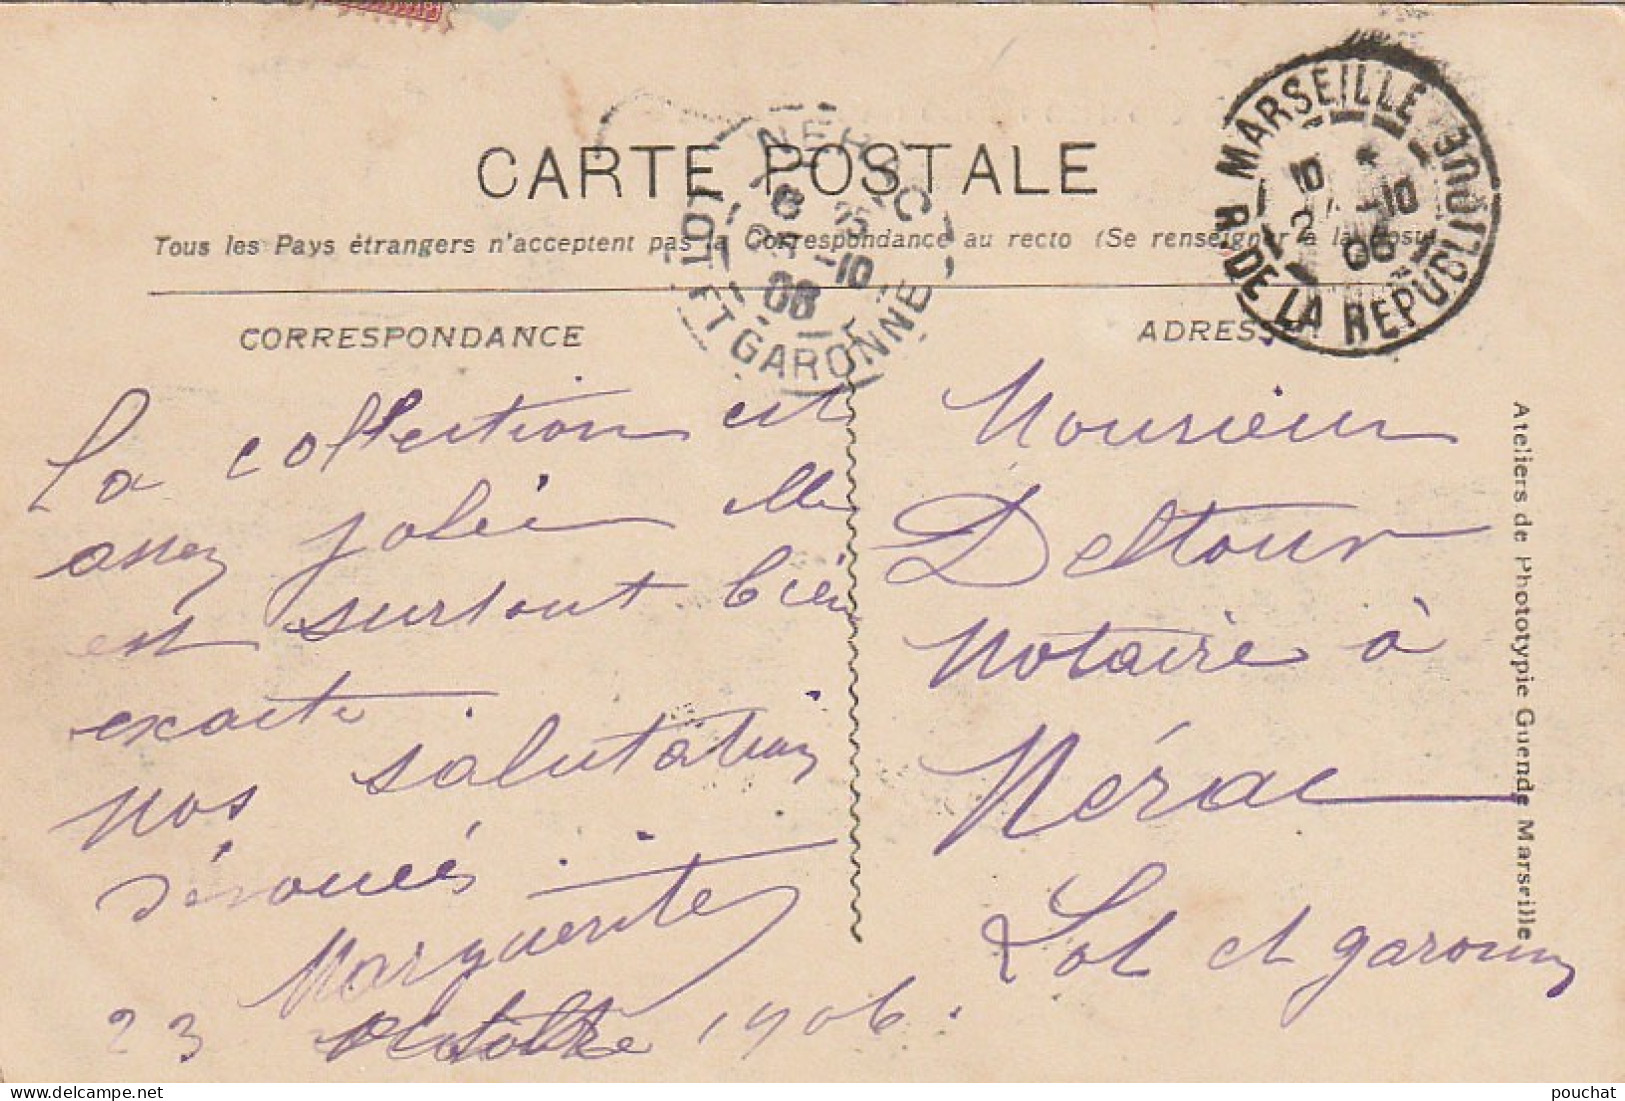 CARTE POSTALE
Tous les Pays étrangers n'acceptent pas la Correspondance au recto (Se renseigner à la Poste
CORRESPONDANCE
ADRESSE
MARSEILLE
R. DE LA REPUBLIQUE
10
-10
06
NERAC
LOT ET GARONNE
-10
06
La collection est
assez jolie elle
est surtout bien
exacte
nos salutations
dévoués
Marguerite
23 Octobre 1906.
Monsieur
Deltour
Notaire à
Nérac
Lot et garonne
Ateliers de Phototypie Guende Marseille
pouchat